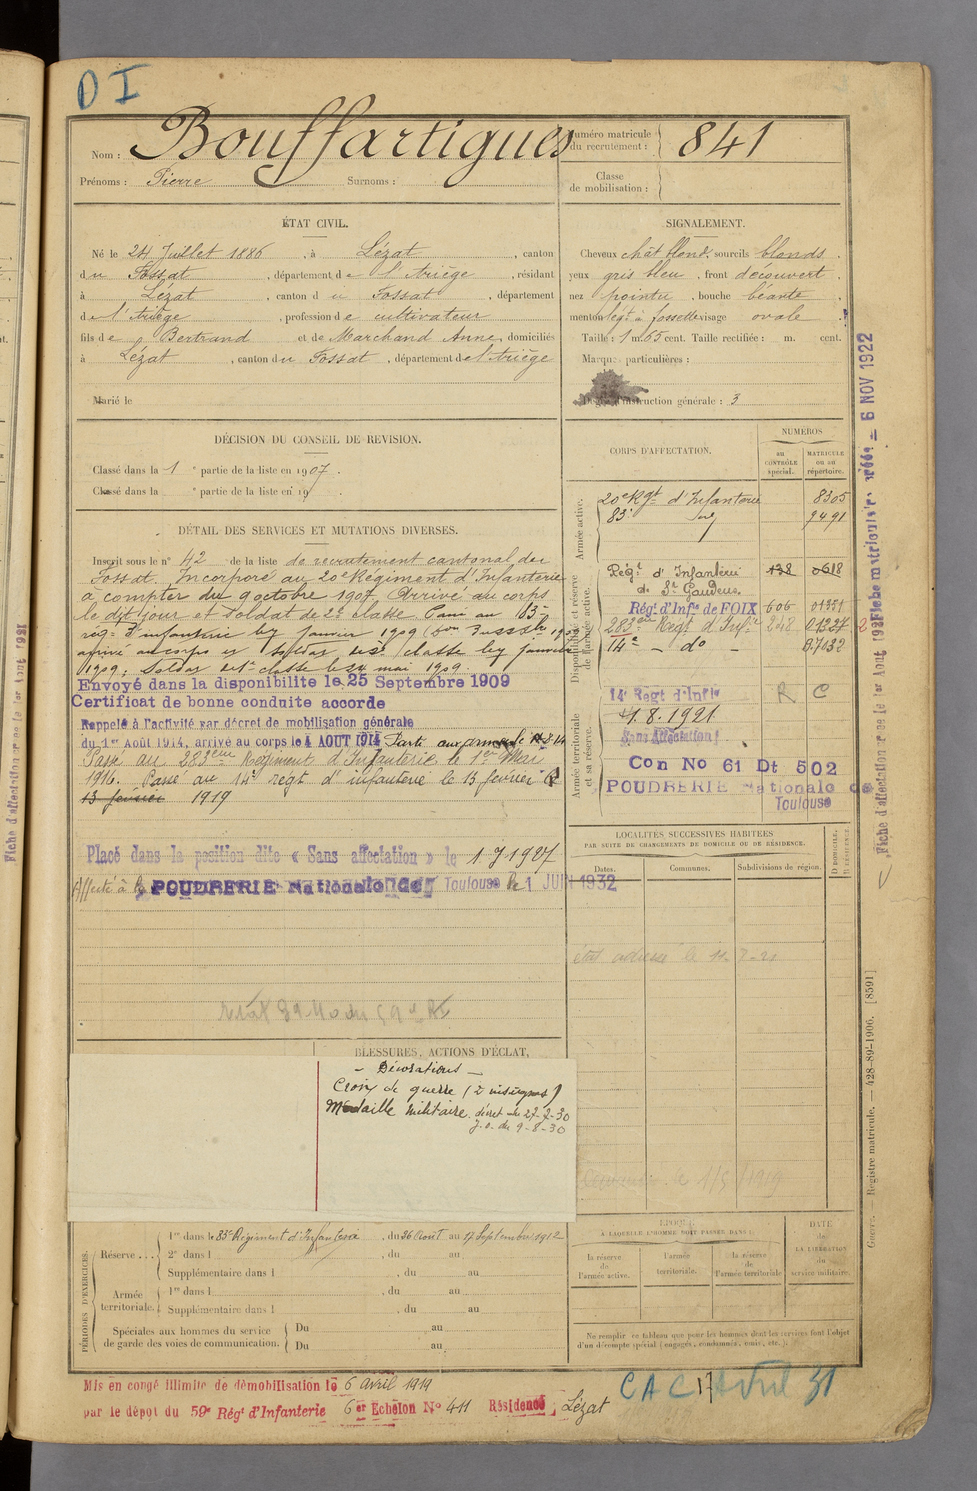 D I
Nom : Bouffartigues
Prénoms : Pierre Surnoms :
Numéro matricule
du recrutement : 841
Classe
de mobilisation :
ÉTAT CIVIL.
Né le 24 Juillet 1886, à Lézat, canton
du Fossat, département de l'Ariège, résidant
à Lézat, canton du Fossat, département
de l'Ariège, profession de cultivateur
fils de Bertrand et de Marchand Anne, domiciliés
à Lézat, canton du Fossat, département de l'Ariège
Marié le
SIGNALEMENT.
Cheveux chât blond, sourcils blonds
yeux gris bleu, front découvert
nez pointu, bouche béante
menton légt à fossette visage ovale
Taille : 1 m. 65 cent. Taille rectifiée : m. cent.
Marques particulières :
Degré d'instruction générale : 3
DÉCISION DU CONSEIL DE REVISION.
Classé dans la 1 e partie de la liste en 1907.
Classé dans la e partie de la liste en 19 .
DÉTAIL DES SERVICES ET MUTATIONS DIVERSES.
Inscrit sous le n° 42 de la liste de recrutement cantonal du
Fossat. Incorporé au 20e Régiment d'Infanterie
à compter du 9 octobre 1907. Arrivé au corps
le dit jour et soldat de 2e classe. Passé au 83e
régt d'infanterie le 7 janvier 1909
arrivé au corps et soldat de 2e classe le 7 janvier
1909. Soldat de 1e classe le 24 mai 1909.
Envoyé dans la disponibilité le 25 Septembre 1909
Certificat de bonne conduite accordé
Rappelé à l'activité par décret de mobilisation générale
du 1er Août 1914, arrivé au corps le 4 AOUT 1914 Parti aux armées le 8 14
Passé au 283eme Régiment d'Infanterie le 1er Mai
1916. Passé au 14e régt d'infanterie le 13 février
13 février 1919
Placé dans la position dite « Sans affectation » le 1 7 1927
Affecté à la POUDRERIE Nationale de Toulouse le 1 JUIN 1932
CORPS D'AFFECTATION.
NUMÉROS
au
CONTRÔLE
spécial.
MATRICULE
ou au
répertoire.
Armée active.
20e Rgt d'Infanterie 8305
83e 7491
Disponibilité et réserve
de l'armée active.
Régt d'Infanterie 138 0618
de St Gaudens
Régt d'Infie de FOIX 606 01351
283eme Régt d'Infie 248 01327
14e - do - 07032
Armée territoriale
et sa réserve.
14e Régt d'Infie R C
1.8.1921
Sans Affectation
Con No 61 Dt 502
POUDRERIE Nationale de
Toulouse
LOCALITÉS SUCCESSIVES HABITÉES
PAR SUITE DE CHANGEMENTS DE DOMICILE OU DE RÉSIDENCE.
Dates. Communes. Subdivisions de région.
D DOMICILE.
R RÉSIDENCE.
état adressé le 11-7-21
BLESSURES, ACTIONS D'ÉCLAT,
- Décorations -
Croix de guerre (2 insignes)
Médaille militaire décret du 27-7-30
J.o. du 9-8-30
PÉRIODES D'EXERCICES.
Réserve . . . 1re dans le 83e Régiment d'Infanterie, du 26 Août au 17 Septembre 1912
2e dans l , du au
Supplémentaire dans l , du au
Armée
territoriale. 1re dans l , du au
Supplémentaire dans l , du au
Spéciales aux hommes du service
de garde des voies de communication. Du au
Du au
ÉPOQUE
À LAQUELLE L'HOMME DOIT PASSER DANS :
la réserve
de
l'armée active.
l'armée
territoriale.
la réserve
de
l'armée territoriale
DATE
de
LA LIBÉRATION
du
service militaire.
Ne remplir ce tableau que pour les hommes dont les services font l'objet
d'un décompte spécial (engagés, condamnés, omis, etc.).
Mis en congé illimité de démobilisation le 6 avril 1919
par le dépôt du 59e Régt d'Infanterie 6er Echelon No 411 Résidence Lézat
C A C 17 Avril 31
Guerre. — Registre matricule. — 428-89-1906. [8591]
6 NOV 1922